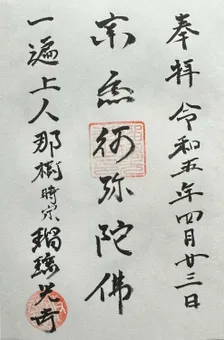 奉拝 令和五年四月廿三日
南無阿弥陀佛
一遍上人 時宗 光寺